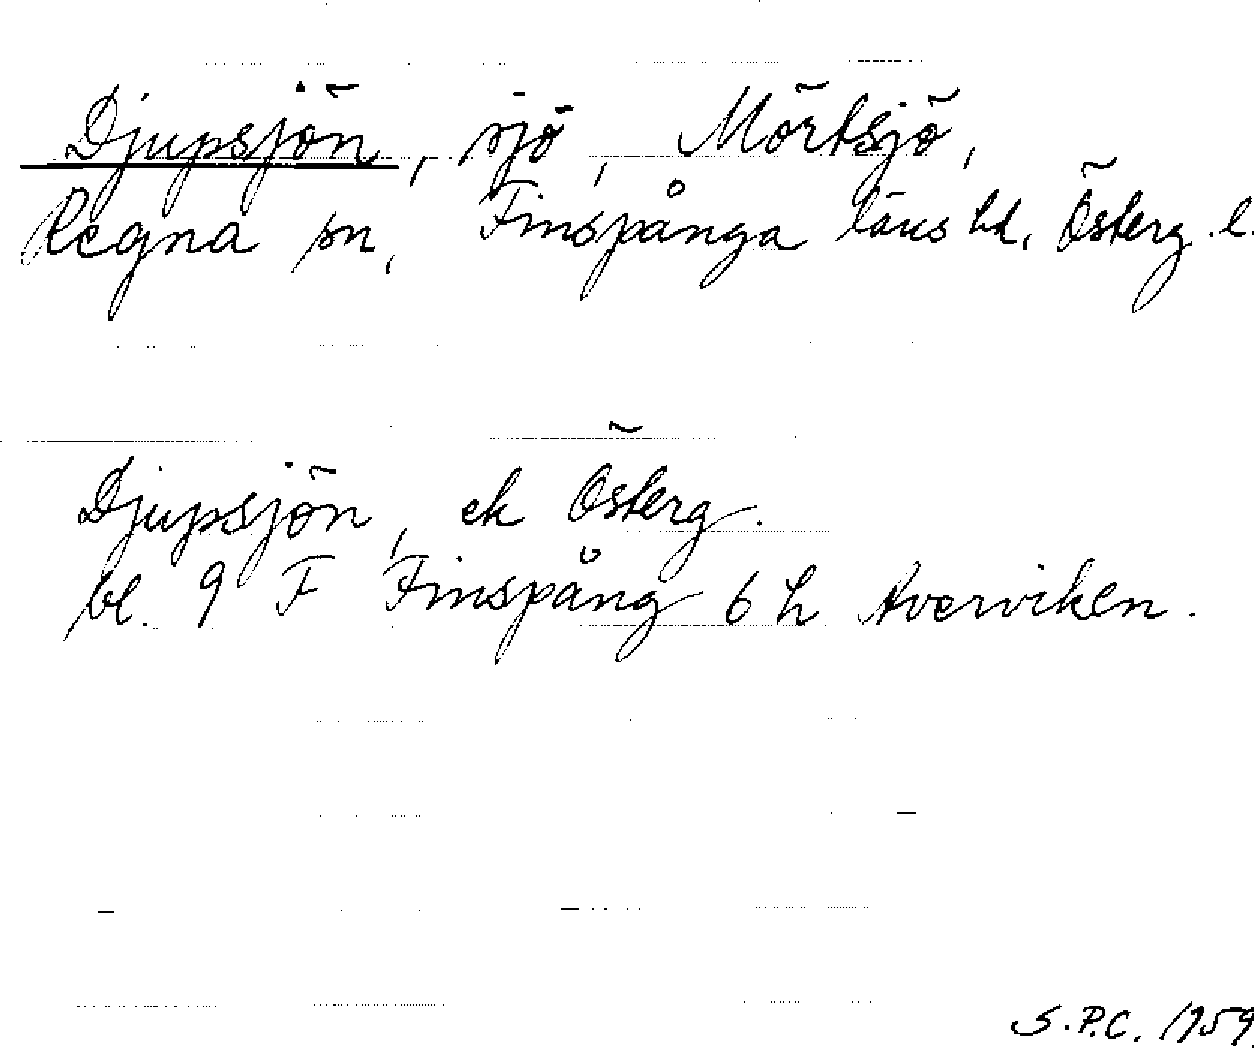 Djupsjön, sjö, Mörtsjö,
Regna sn, Finspånga läns hd, Österg. l.
Djupsjön, ek Österg.
bl. 9 F Finspång 6 h Averviken.
S.P.C. 1959.